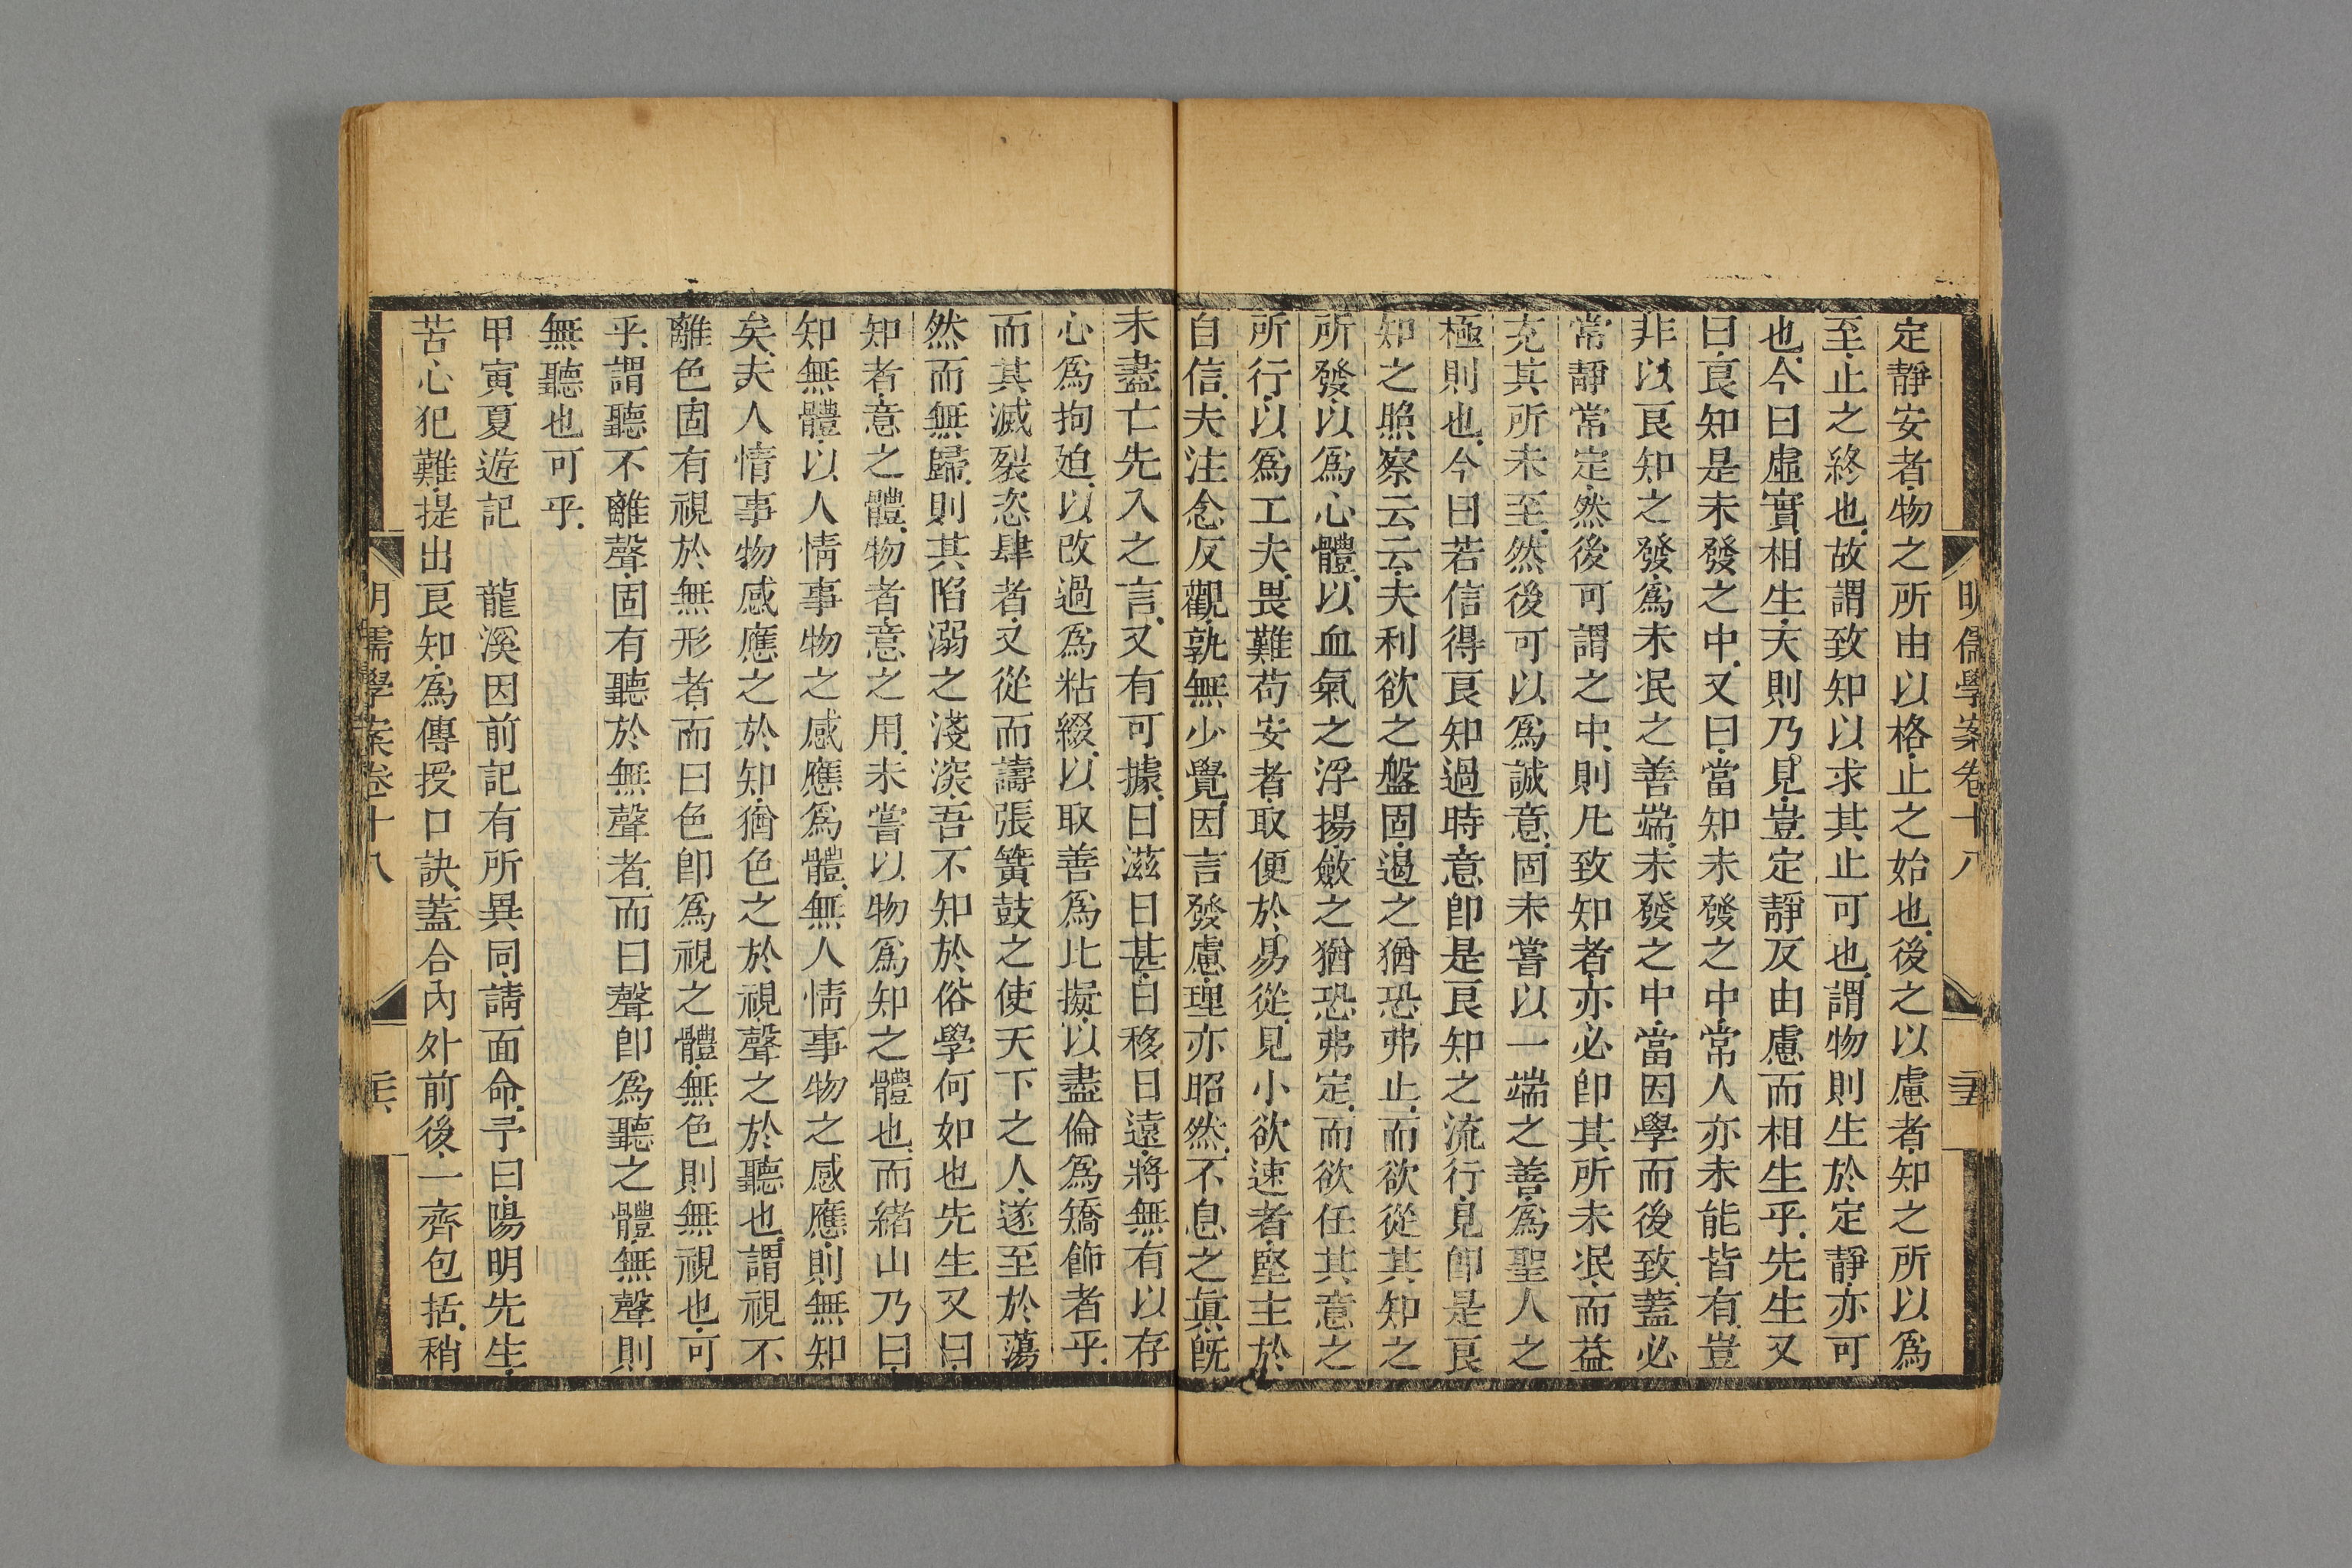 明儒學案卷十八
定靜安者物之所由以格止之始也後之以慮者知之所以爲
至止之終也故謂致知以求其止可也謂物則生於定靜亦可
也今曰虛實相生天則乃見豈定靜反由慮而相生乎先生又
曰良知是未發之中又曰當知未發之中常人亦未能皆有豈
非以良知之發爲未泯之善端未發之中當因學而後致蓋必
常靜常定然後可謂之中則凡致知者亦必卽其所未泯而益
充其所未至然後可以爲誠意固未嘗以一端之善爲聖人之
極則也今曰若信得良知過時意卽是良知之流行見卽是良
知之照察云云夫利欲之盤固遏之猶恐弗止而欲從其知之
所發以爲心體以血氣之浮揚斂之猶恐弗定而欲任其意之
所行以爲工夫畏難苟安者取便於易從見小欲速者堅主於
自信夫注念反觀孰無少覺因言發慮理亦昭然不息之眞旣
未盡亡先入之言又有可據日滋日甚日移日遠將無有以存
心爲拘廹以改過爲粘綴以取善爲比擬以盡倫爲矯飾者乎
而其滅裂恣肆者又從而譸張簧鼓之使天下之人遂至於蕩
然而無歸則其陷溺之淺深吾不知於俗學何如也先生又曰
知者意之體物者意之用未嘗以物爲知之體也而緒山乃曰
知無體以人情事物之感應爲體無人情事物之感應則無知
矣夫人情事物感應之於知猶色之於視聲之於聽也謂視不
離色固有視於無形者而曰色卽爲視之體無色則無視也可
乎謂聽不離聲固有聽於無聲者而曰聲卽爲聽之體無聲則
無聽也可乎
甲寅夏遊記　龍溪因前記有所異同請面命予曰陽明先生
苦心犯難提出良知爲傳授口訣蓋合內外前後一齊包括稍
明儒學案卷十八